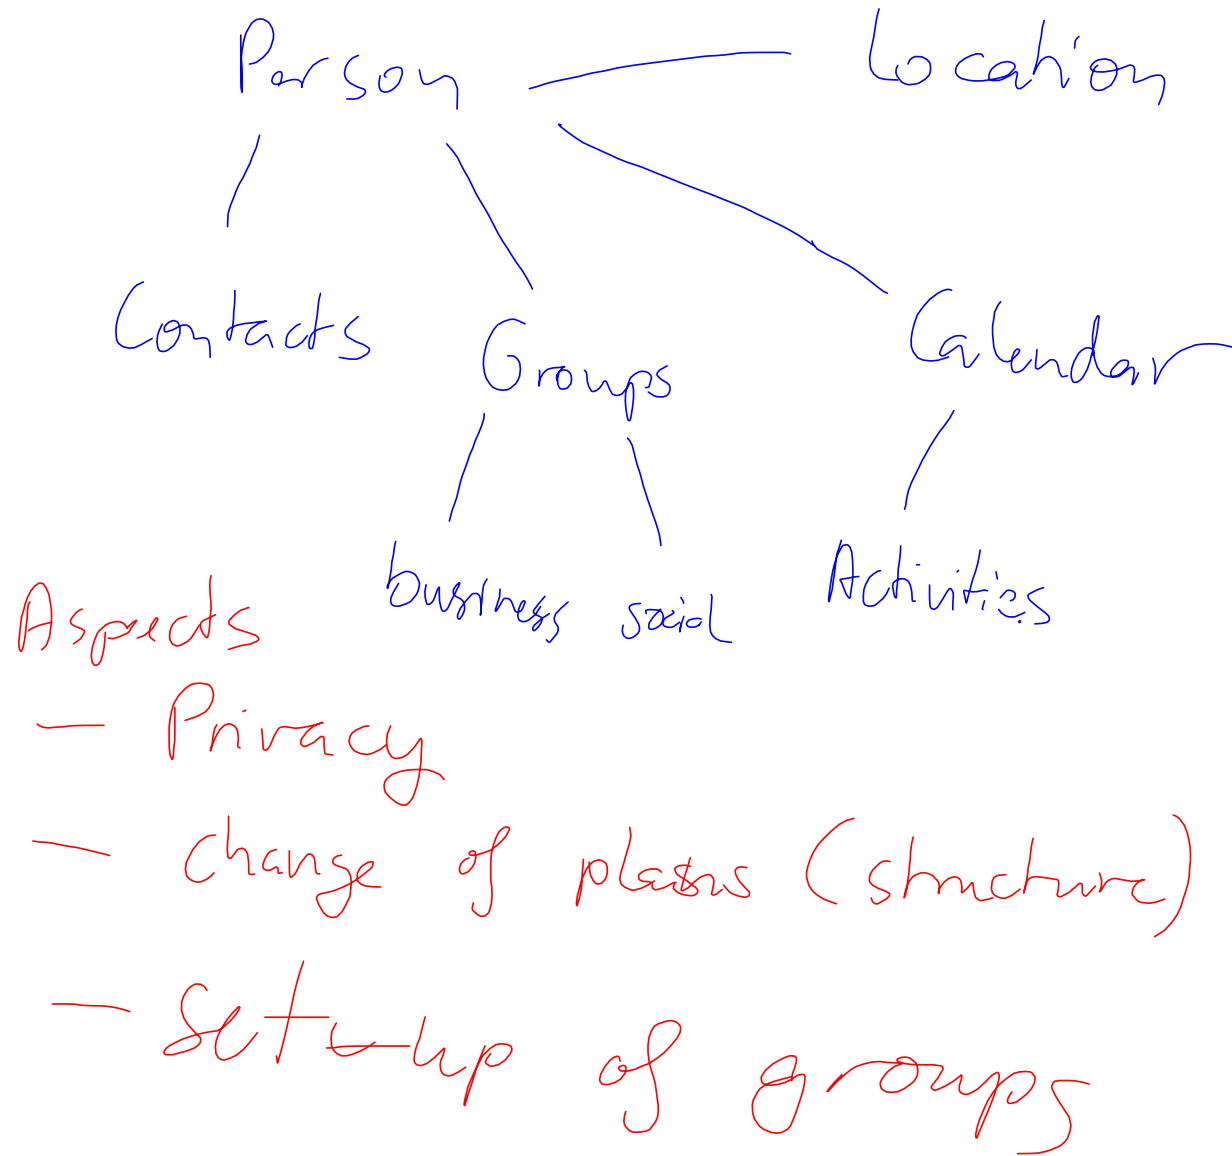 Person Location
Contacts Groups Calendar
business social Activities
Aspects
- Privacy
- change of plans (structure)
- set-up of groups